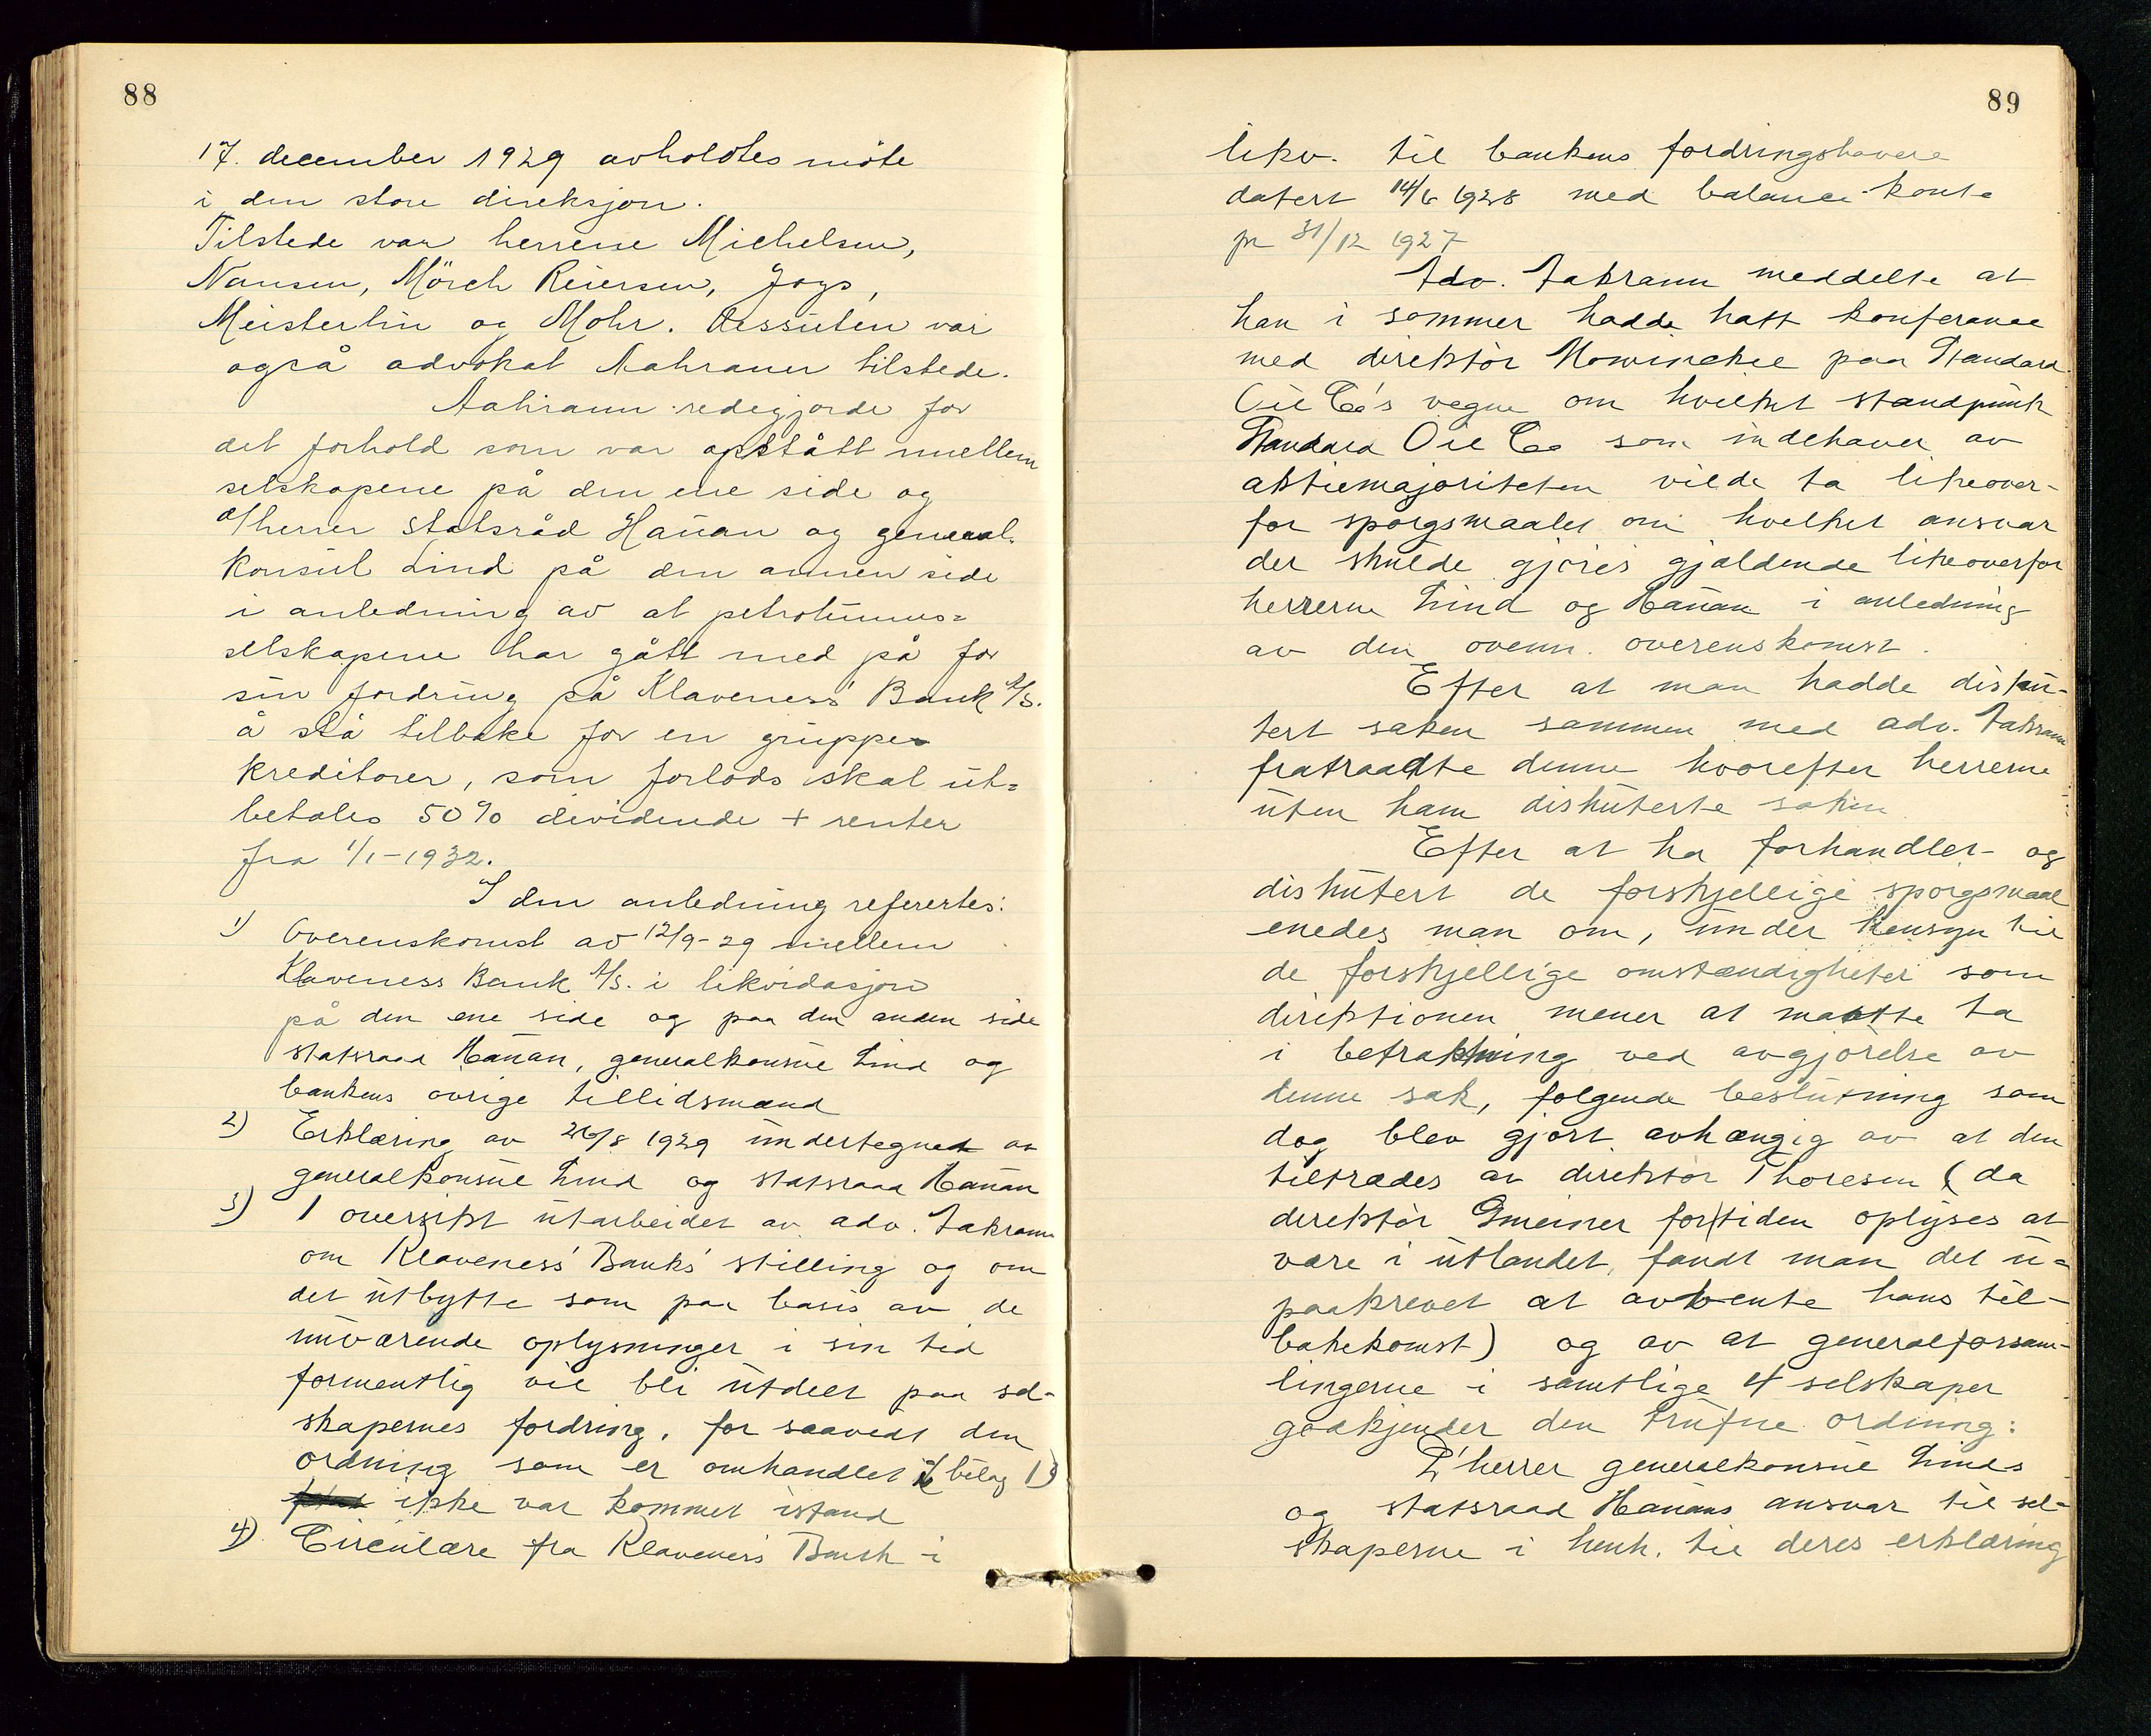 88
17. december 1929 avholdtes möte
i den store direksjon.
Tilstede var herrene Michelsen,
Nansen, Mörch Reiersen, Joys,
Meisterlin og Mohr. Dessuten var
også advokat Aahrann tilstede.
Aahrann redegjorde for
det forhold som var opstått mellem
selskapene på den ene side og
d'herrer statsråd Hauan og general-
konsul Lind på den annen side
i anledning av at petroleums=
selskapene har gått med på for
sin fordring på Klaveness' Bank A/S.
å stå tilbake for en gruppe
kreditorer, som forlods skal ut=
betales 50% dividende + renter
fra 1/1-1932.
I den anledning referertes:
1) Overenskomst av 12/9-29 mellem
Klaveness Bank A/S. i likvidasjon
på den ene side og paa den anden side
statsraad Hauan, generalkonsul Lind og
bankens øvrige tillidsmænd
2) Erklæring av 26/8 1929 undertegnet av
generalkonsul Lind og statsraad Hauan
3) 1 oversikt utarbeidet av adv. Aahrann
om Klaveness' Banks' stilling og om
det utbytte som paa basis av de
nuværende oplysninger i sin tid
formentlig vil bli utdelt paa sel-
skapernes fordring, for saavidt den
ordning som er omhandlet i bilag 1)
ikke var kommet istand
4) Circulære fra Klaveness Bank i
89
likv. til bankens fordringshavere
datert 14/6 1928 med balance-konto
pr 31/12 1927
Adv. Aahrann meddelte at
han i sommer hadde hatt konferanse
med direktør Mowinckel paa Standard
Oil Co's vegne om hvilket standpunkt
Standard Oil Co som indehaver av
aktiemajoriteten vilde ta likeover-
for spørgsmaalet om hvilket ansvar
der skulde gjøres gjældende likeoverfor
herrerne Lind og Hauan i anledning
av den ovenn. overenskomst.
Efter at man hadde disku-
tert saken sammen med adv. Aahrann
fratraadte denne hvorefter herrerne
uten ham diskuterte saken
Efter at ha forhandlet og
diskutert de forskjellige spørgsmaal
enedes man om, under hensyn til
de forskjellige omstændigheter som
direktionen mener at maatte ta
i betraktning ved avgjørelse av
denne sak, følgende beslutning som
dog blev gjort avhængig av at den
tiltrædes av direktør Thoresen (da
direktør Gmeiner fortiden oplyses at
være i utlandet, fandt man det u-
paakrevet at avvente hans til-
bakekomst) og av at generalforsam-
lingerne i samtlige 4 selskaper
godkjender den trufne ordning:
D'herrer generalkonsul Linds
og statsraad Hauans ansvar til sel-
skaperne i henh. til deres erklæring